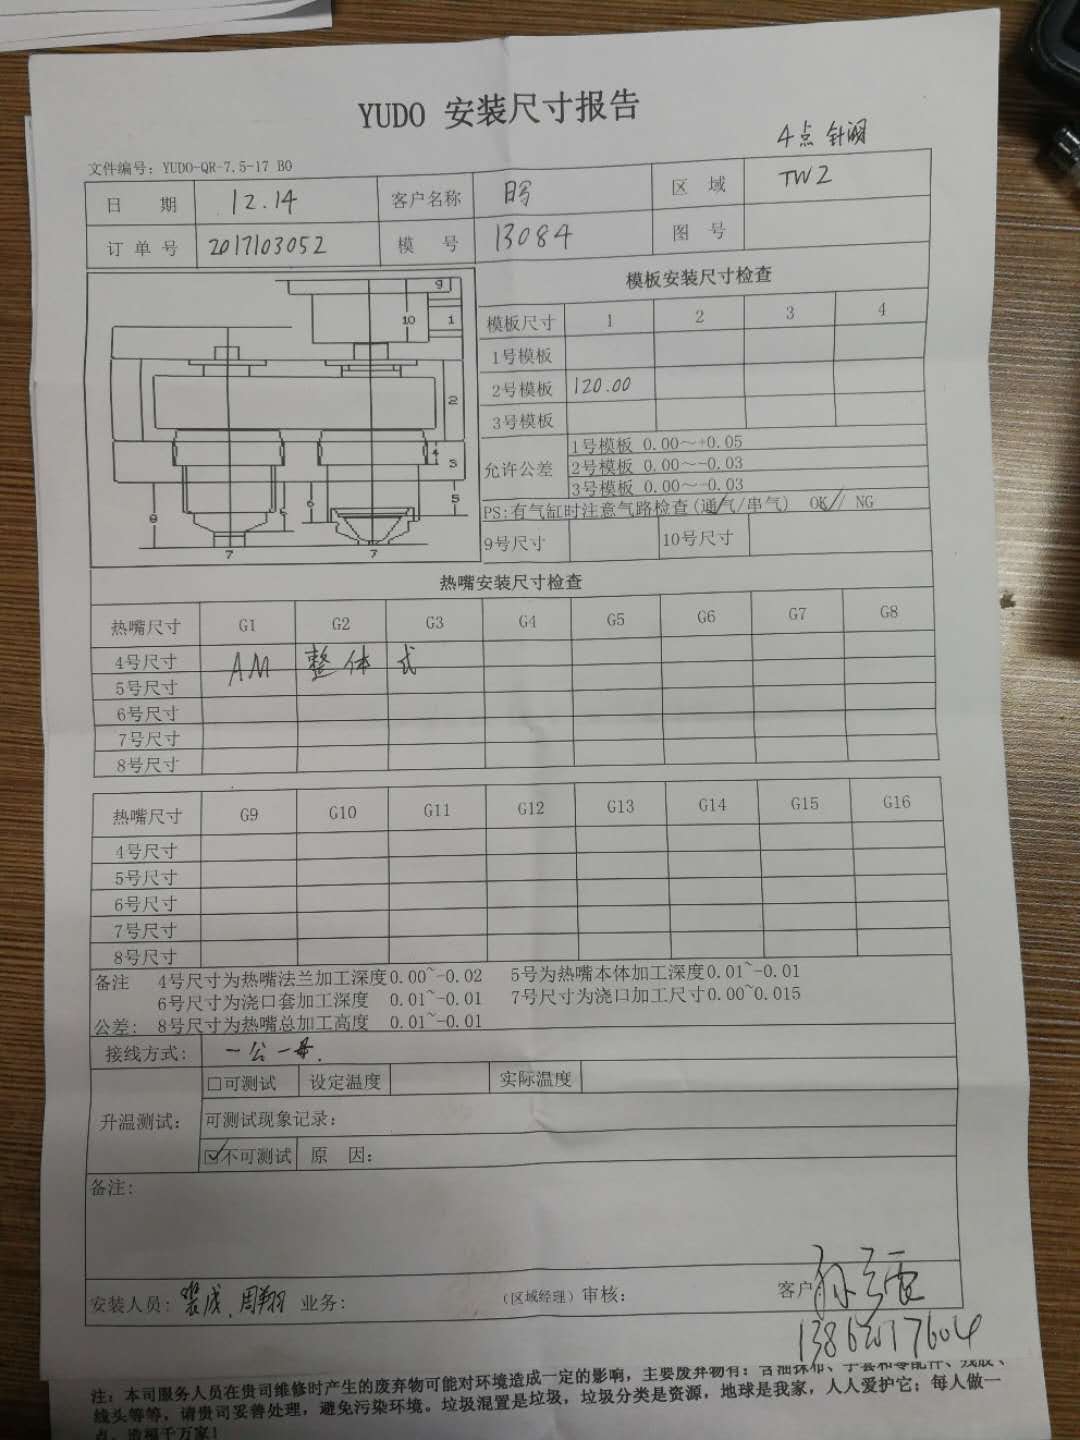 YUDO 安装尺寸报告
4点 针阀
文件编号: YUDO-QR-7.5-17 B0
日 期 12.14 客户名称 区 域 TW2
订 单 号 2017103052 模 号 13084 图 号
模板安装尺寸检查
模板尺寸 1 2 3 4
1号模板
2号模板 120.00
3号模板
允许公差 1号模板 0.00～+0.05
2号模板 0.00～-0.03
3号模板 0.00～-0.03
PS:有气缸时注意气路检查(通气/串气) OK// NG
9号尺寸 10号尺寸
9
10 1
2
4 3
5 6 5
8
7 7
热嘴安装尺寸检查
热嘴尺寸 G1 G2 G3 G4 G5 G6 G7 G8
4号尺寸 AM 整体式
5号尺寸
6号尺寸
7号尺寸
8号尺寸
热嘴尺寸 G9 G10 G11 G12 G13 G14 G15 G16
4号尺寸
5号尺寸
6号尺寸
7号尺寸
8号尺寸
备注 4号尺寸为热嘴法兰加工深度0.00~-0.02 5号为热嘴本体加工深度0.01~-0.01
6号尺寸为浇口套加工深度 0.01~-0.01 7号尺寸为浇口加工尺寸0.00~0.015
公差: 8号尺寸为热嘴总加工高度 0.01~-0.01
接线方式: 一公一母.
升温测试: □可测试 设定温度 实际温度
可测试现象记录:
☑不可测试 原 因:
备注:
安装人员: 裴成、周翔 业务: (区域经理)审核: 客户
注: 本司服务人员在贵司维修时产生的废弃物可能对环境造成一定的影响, 主要废弃物有: 含油抹布、手套和零配件、残胶、
线头等等, 请贵司妥善处理, 避免污染环境。垃圾混置是垃圾, 垃圾分类是资源, 地球是我家, 人人爱护它; 每人做一
点, 造福千万家!